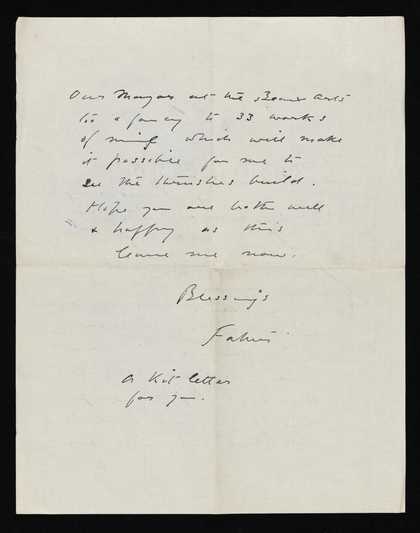 Our Mayor at the Beaux Arts
to a fancy to 33 works
of mine which will make
it possible for me to
see the thrushes build.
Hope you are both well
& happy as this
leave me now.
Blessings
Father
A Kit letter
for you.